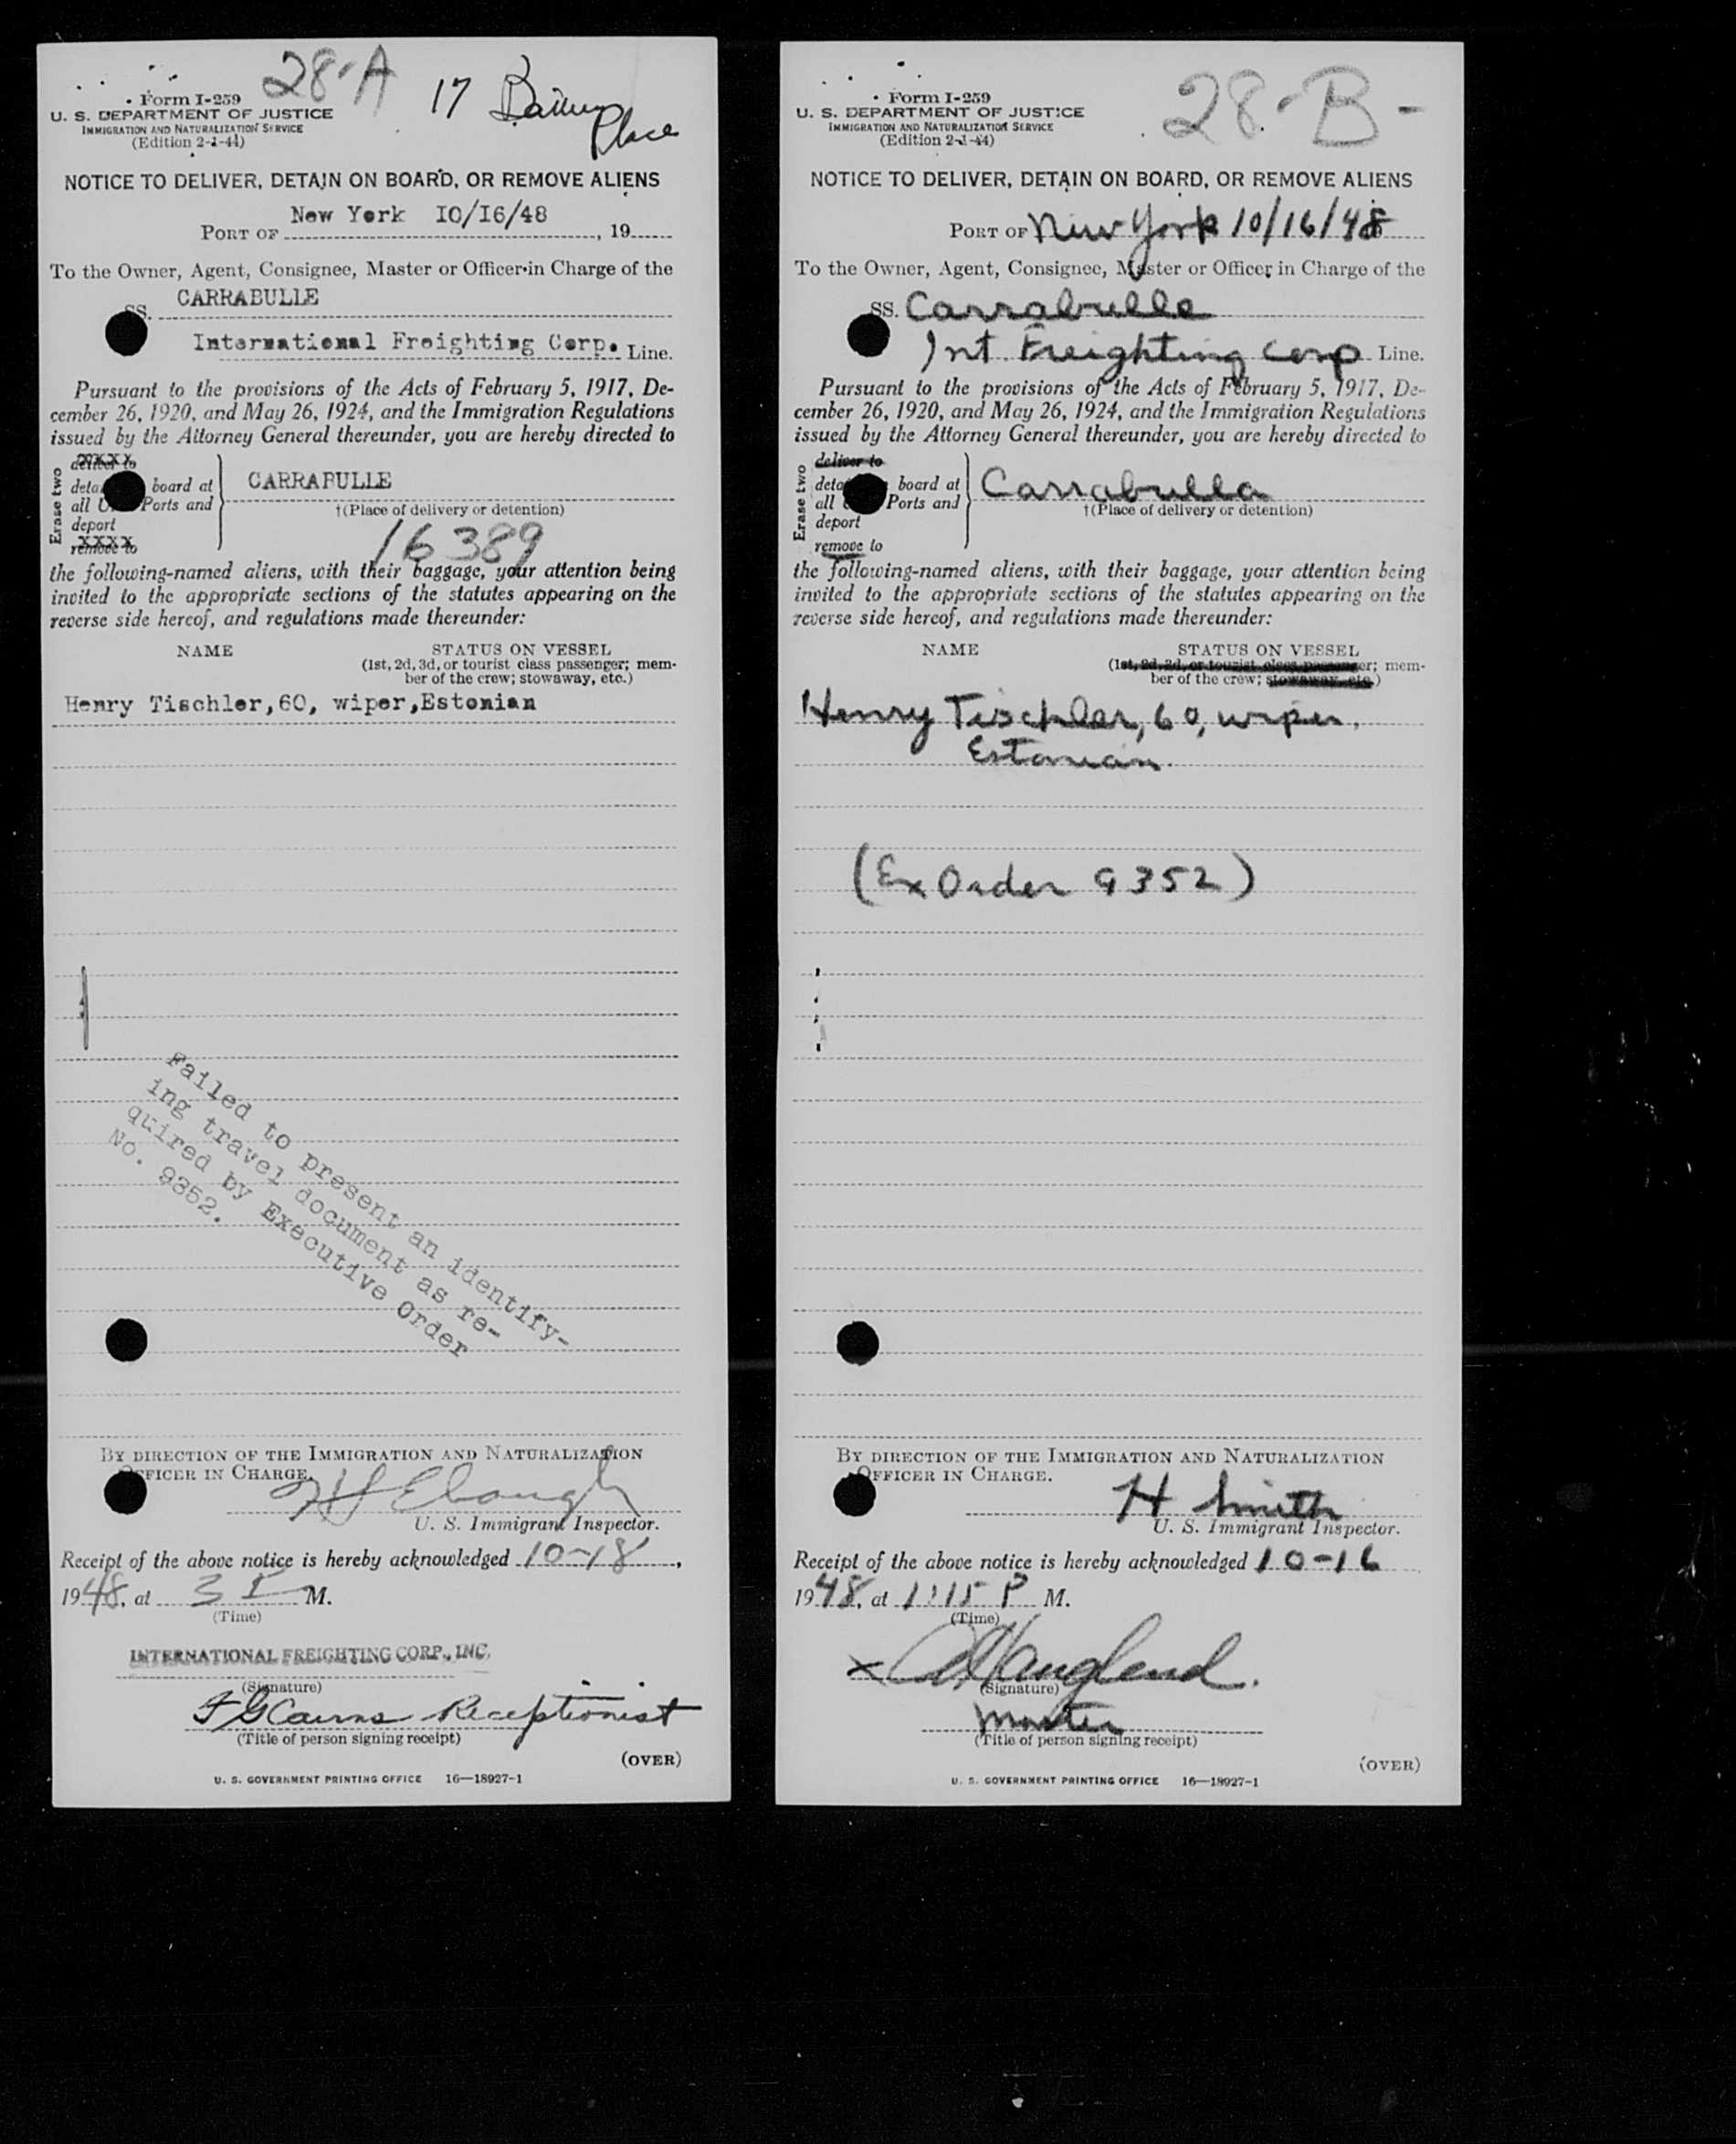 28-A
17 Battery
Place
Form I-259
U. S. DEPARTMENT OF JUSTICE
IMMIGRATION AND NATURALIZATION SERVICE
(Edition 2-1-44)
NOTICE TO DELIVER, DETAIN ON BOARD, OR REMOVE ALIENS
PORT OF New York 10/16/48, 19
To the Owner, Agent, Consignee, Master or Officer in Charge of the
SS. CARRABULLE
International Freighting Corp. Line.
Pursuant to the provisions of the Acts of February 5, 1917, De-
cember 26, 1920, and May 26, 1924, and the Immigration Regulations
issued by the Attorney General thereunder, you are hereby directed to
Erase two
deliver to
board at
all Ports and
deport
remove to
CARRABULLE
†(Place of delivery or detention)
16389
the following-named aliens, with their baggage, your attention being
invited to the appropriate sections of the statutes appearing on the
reverse side hereof, and regulations made thereunder:
NAME STATUS ON VESSEL
(1st, 2d, 3d, or tourist class passenger; mem-
ber of the crew; stowaway, etc.)
Henry Tischler, 60, wiper, Estonian
Failed to present an identify-
ing travel document as re-
quired by Executive Order
No. 9352.
BY DIRECTION OF THE IMMIGRATION AND NATURALIZATION
OFFICER IN CHARGE.
U. S. Immigrant Inspector.
Receipt of the above notice is hereby acknowledged 10-18,
1948, at 3 P M.
(Time)
INTERNATIONAL FREIGHTING CORP., INC.
(Signature)
Receptionist
(Title of person signing receipt)
(OVER)
U. S. GOVERNMENT PRINTING OFFICE 16—18927-1
28-B-
Form I-259
U. S. DEPARTMENT OF JUSTICE
IMMIGRATION AND NATURALIZATION SERVICE
(Edition 2-1-44)
NOTICE TO DELIVER, DETAIN ON BOARD, OR REMOVE ALIENS
PORT OF New York 10/16/48
To the Owner, Agent, Consignee, Master or Officer in Charge of the
SS. Carrabulle
Int Freighting Corp Line.
Pursuant to the provisions of the Acts of February 5, 1917, De-
cember 26, 1920, and May 26, 1924, and the Immigration Regulations
issued by the Attorney General thereunder, you are hereby directed to
Erase two
deliver to
board at
all Ports and
deport
remove to
Carrabulla
†(Place of delivery or detention)
the following-named aliens, with their baggage, your attention being
invited to the appropriate sections of the statutes appearing on the
reverse side hereof, and regulations made thereunder:
NAME STATUS ON VESSEL
(1st, 2d, 3d, or tourist class passenger; mem-
ber of the crew; stowaway, etc.)
Henry Tischler, 60, wiper,
Estonian.
(Ex Order 9352)
BY DIRECTION OF THE IMMIGRATION AND NATURALIZATION
OFFICER IN CHARGE.
H Smith
U. S. Immigrant Inspector.
Receipt of the above notice is hereby acknowledged 10-16
1948, at 1:15 P M.
(Time)
(Signature)
Master
(Title of person signing receipt)
(OVER)
U. S. GOVERNMENT PRINTING OFFICE 16—18927-1